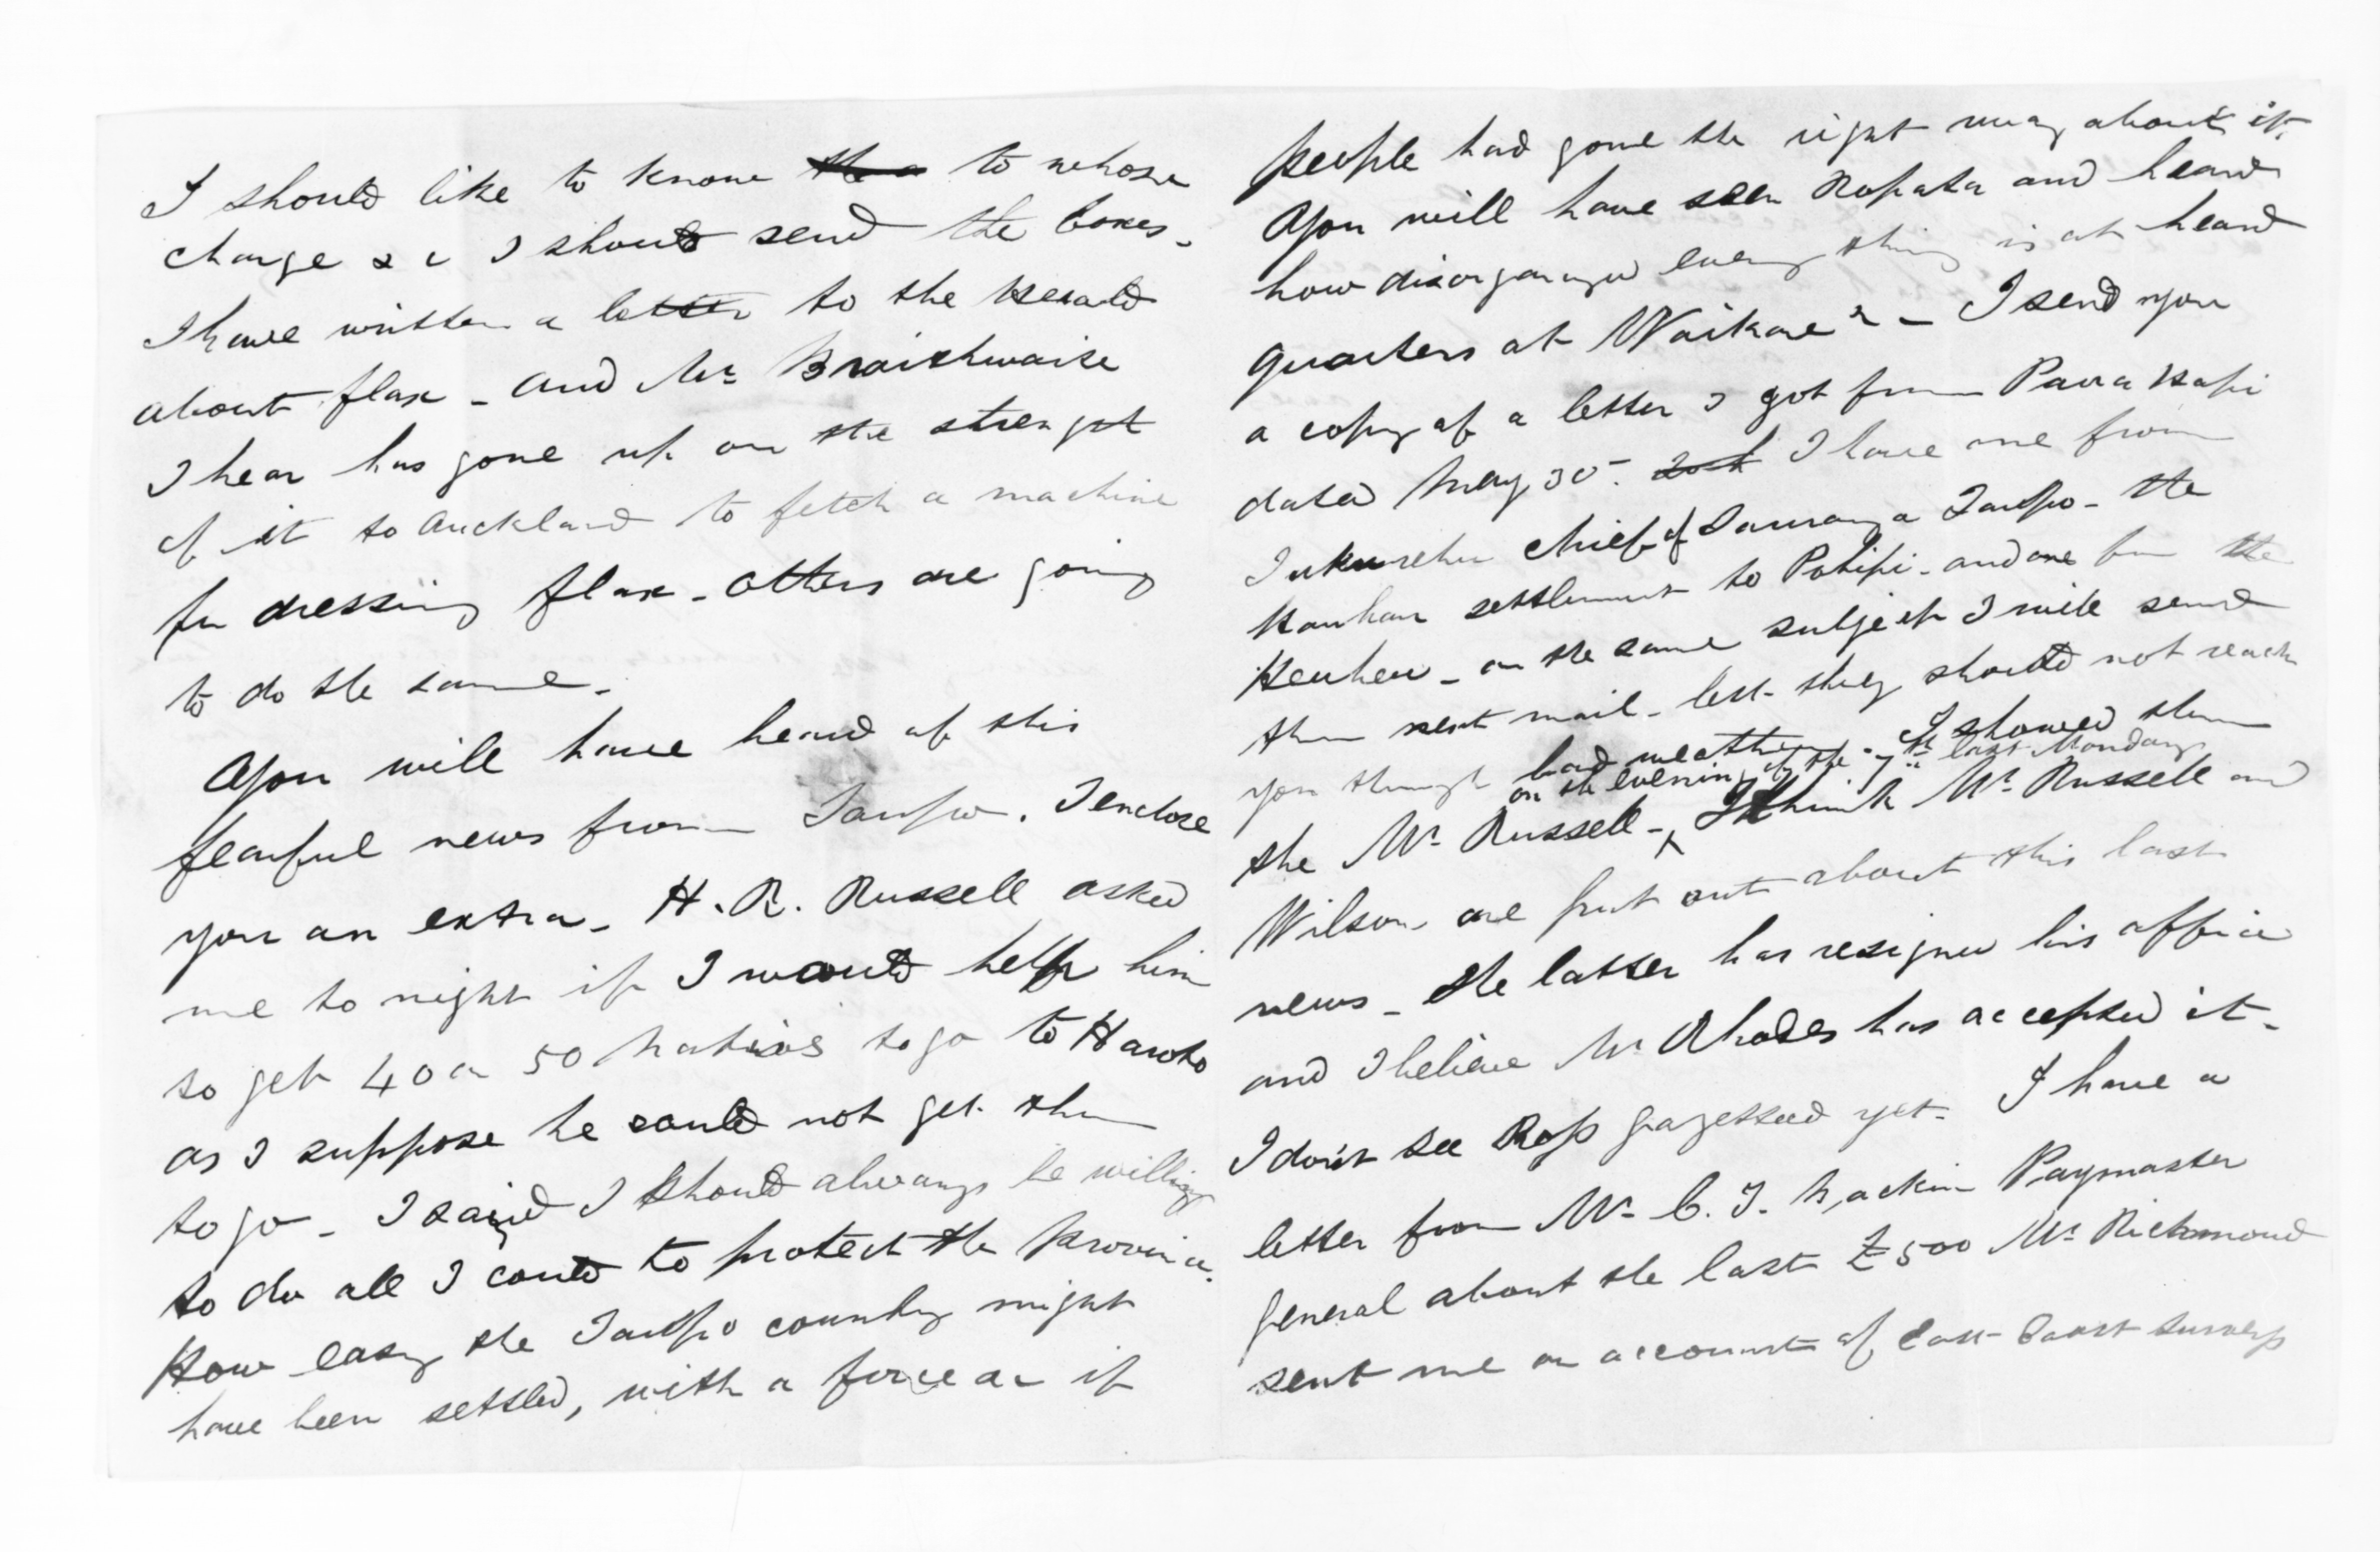 I should like to know to whose
charge &c I should send the boxes -
I have written a letter to the Herald
about flax - and Mr Braithwaite
I hear has gone up on the strenght
of it to Auckland to fetch a machine
for dressing flax - others are going
to do the same -
You will have heard of this
fearful news from Taupo. I enclose
you an extra - H. R. Russell asked
me to night if I would help him
to get 40 or 50 natives to go to
as I suppose he could not get them
to go - I said I should always be willing
to do all I could to protect the Province.
How easy the Taupo country might
have been settled, with a force or if
people had gone the right way about it.
You will have seen Ropata and heard
how disorganized every thing is at head
quarters at - I send you
a copy of a letter I got from Paora Hapi
dated May 30 - I have one from
chief of Tauranga Taupo - the
Hauhau settlement to Potipi - and one from the
Heuheu - on the same subject I will send
them next mail - lest they should not reach
you through bad weather - I showed them
on the evening of the 7th last Monday
the Mr Russell - I think Mr Russell and
Wilson are put out about this last
news - the latter has resigned his office
and I believe Mr Rhodes has accepted it -
I don't see gazetteed yet - I have a
letter from Mr C. T. Paymaster
general about the last £500 Mr Richmond
sent me on account of East Coast surveys